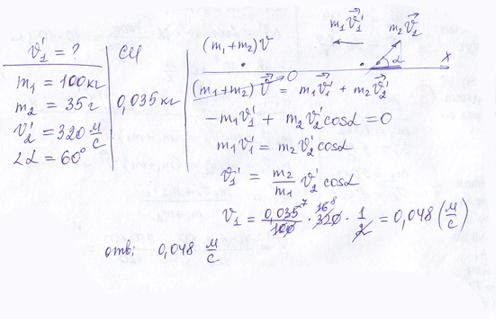 v₁' = ? | СИ
m₁ = 100 кг
m₂ = 35 г | 0,035 кг
v₂' = 320 м/с
∠α = 60°
(m₁+m₂)v
m₁v⃗₁'
m₂v⃗₂'
α
x
(m₁+m₂)v⃗ → 0 = m₁v⃗₁' + m₂v⃗₂'
-m₁v₁' + m₂v₂'cosα = 0
m₁v₁' = m₂v₂'cosα
v₁' = m₂/m₁ v₂'cosα
v₁ = 0,035/100 · 320 · 1/2 = 0,048 (м/с)
отв: 0,048 м/с